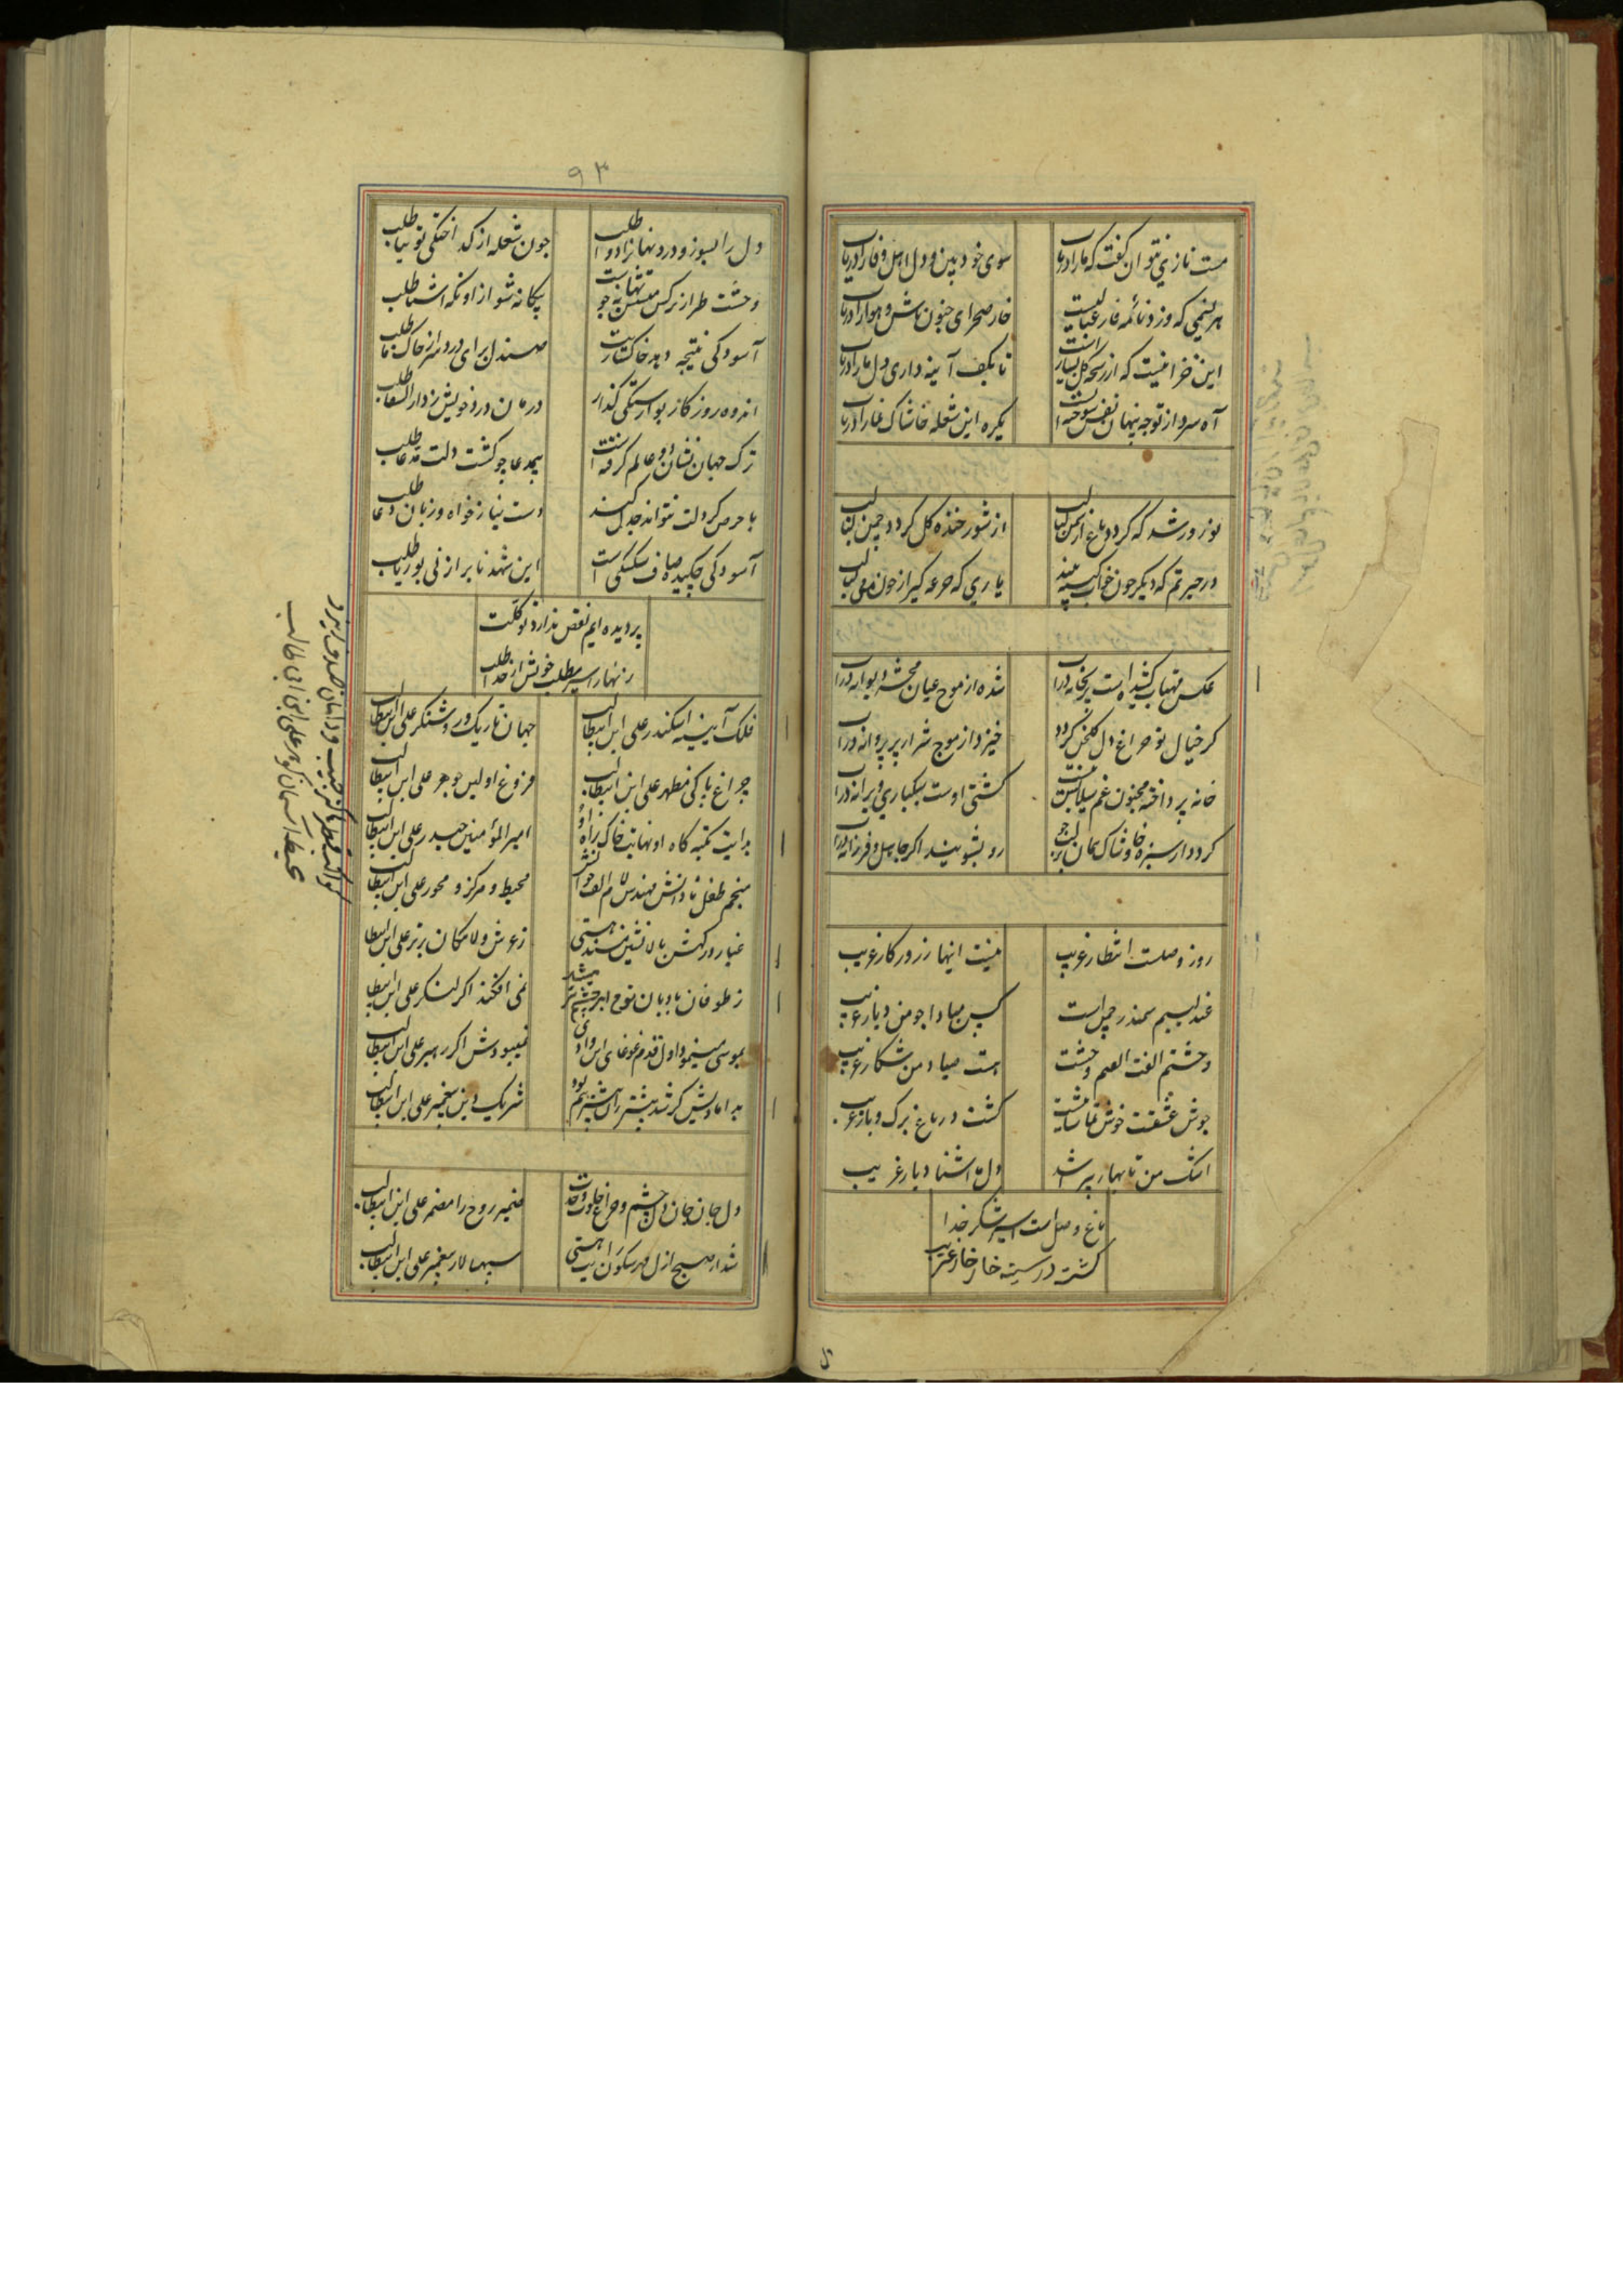 مست نازی نتوان گفت که ما را دریاب
سوی خود بین و دل اهل وفا را دریاب
هر نسیمی که وزد نائمه
خار صحرای جنون باش و هوا را دریاب
این خزا نیست که از رشحه گل بسیار است
تا بکف آینه داری دل ما را دریاب
آه سرد از توجه پنهان نفس سوخته
یکره این شعله خاشاک نما را دریاب
نوروز شد که گردد باغ از چمن لبالب
از شور خنده گل گردد چمن لبالب
در حیرتم که دیگر چون خواب
یاری که جرعه گیر از خون
عکس مهتاب کشیده است پریخانه در آب
شده از موج عیان محشر دیوانه در آب
گر خیال تو چراغ دل گلخن گردد
خیزد از موج شرار پر پروانه در آب
خانه پرداخته مجنون غم سیلابست
کشتی اوست سبکباری ویرانه در آب
گردد از سبزه خاشاک
رو بشویند اگر جاهل و فرزانه در آب
روز وصلست انتظار غریب
نیست اینها ز روزگار غریب
عندلیبم سمندر چمن است
کس مبادا چو من دیار غریب
وحشتم الفت الفتم وحشت
هست صیاد من شکار غریب
جوش عشقت خوش تماشاییست
گشت در باغ برگ و بار غریب
اشک من تا بهار پیر شد
دل ما آشنا دیار غریب
باغ وصل است اسیر شکر خدا
گشت در سینه خار خار غریب
۹۳
دل را بسوز و درد نهان را دوا طلب
چون شعله از گداختگی توتیا طلب
وحشت طراز نرگس مستش بهانه جوست
بیگانه شو از او نگه آشنا طلب
آسودگی نتیجه دهد خاکساریت
صندل برای درد سر از خاک پا طلب
اندوه روزگار بوارستگی گذار
درمان درد خویش ز دار الشفا طلب
ترک جهان نشان دو عالم گرفتن است
بیمدعا چو گشت دلت مدعا طلب
با حرص گر دلت نتواند جدل کند
دست نیاز خواه و زبان دعا طلب
آسودگی چکیده صاف شکستگی است
این شهد ناب را ز نی بوریا طلب
پر دیده ایم نقص ندارد توکلت
زنهار اسیر مطلب خویش از خدا طلب
فلک آیینه اسکندر علی ابن ابیطالب
جهان تاریک و روشنگر علی ابن ابیطالب
چراغ پاکی مظهر علی ابن ابیطالب
فروغ اولین جوهر علی ابن ابیطالب
بدایت تکیه گاه او نهایت خاک راه او
امیر المؤمنین حیدر علی ابن ابیطالب
منجم طفل نادانش مهندس لام الف خوانش
محیط و مرکز و محور علی ابن ابیطالب
غبار درگهش بالانشین مسند هستی
ز عرش و لامکان برتر علی ابن ابیطالب
ز طوفان بادبان نوح ابر چشم تر میشد
نمی افکند اگر لنگر علی ابن ابیطالب
بموسی مینمود اول قدم غوغای این وادی
نمیبودش اگر رهبر علی ابن ابیطالب
بدامادیش گر شد بیشتر
شریک دین پیغمبر علی ابن ابیطالب
دل جان جان دل چشم و چراغ خلوت وحدت
ضمیر روح را مضمر علی ابن ابیطالب
شد از صبح ازل
سپهسالار پیغمبر علی ابن ابیطالب
محیط آسمان گوهر علی ابن ابی طالب